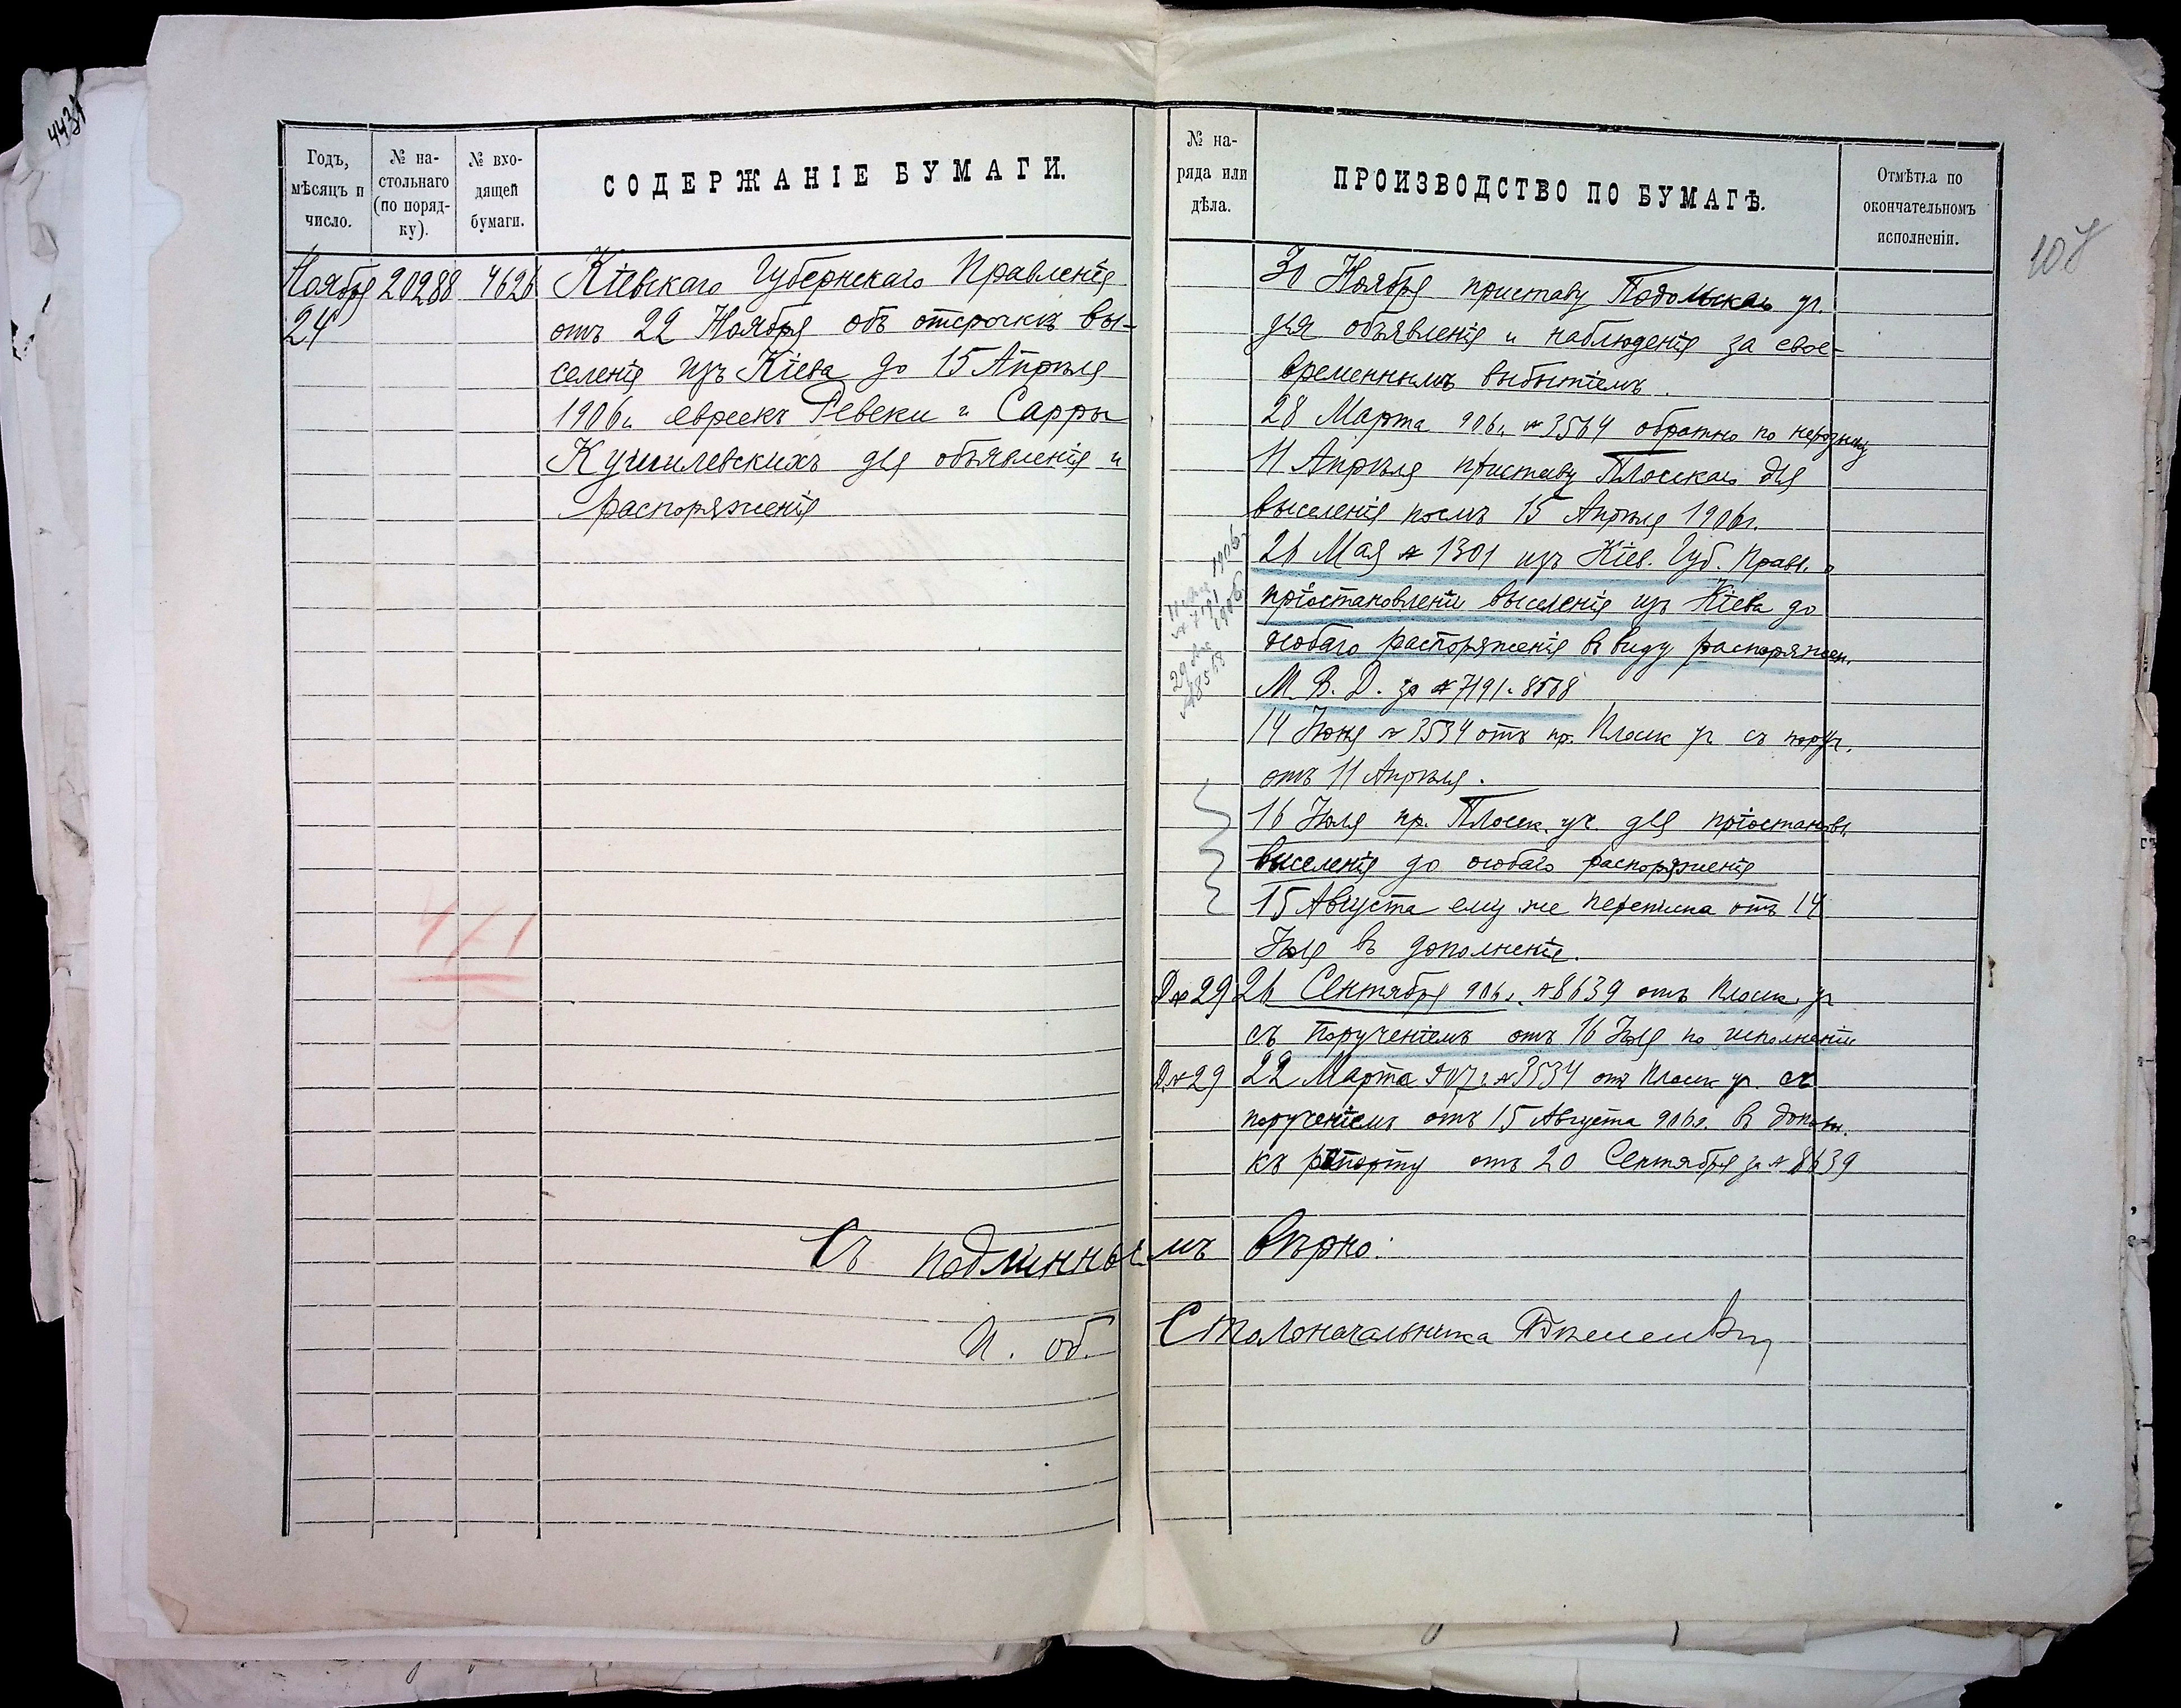 4431
108
Годъ,
мѣсяцъ и
число.
№ на-
стольнаго
(по поряд-
ку).
№ вхо-
дящей
бумаги.
СОДЕРЖАНІЕ БУМАГИ.
Ноября 20288 4626 Кіевскаго Губернскаго Правленія
24 отъ 22 Ноября объ отсрочкѣ вы-
селенія изъ Кіева до 15 Апрѣля
1906г. евреекъ Ревеки и Сарры
Кушилевскихъ для объявленія и
распоряженія
№ на-
ряда или
дѣла.
ПРОИЗВОДСТВО ПО БУМАГѢ.
Отмѣтка по
окончательномъ
исполненіи.
30 Ноября приставу Подольскаго уч.
для объявленія и наблюденія за свое-
временнымъ выбытіемъ.
28 Марта 906г. № 3564 обратно по
11 Апрѣля приставу Плоскаго для
выселенія послѣ 15 Апрѣля 1906г.
26 Мая № 1301 изъ Кіев. Губ. Правл. о
пріостановленіи выселенія изъ Кіева до
особаго распоряженія въ виду распоряжен.
М. В. Д. за № 7191 и 8568
1906г.
№ 7191
29
1906
№ 8568
14 Іюня № 3534 отъ пр. Плоск уч съ поруч.
отъ 11 Апрѣля.
16 Іюля пр. Плоск. уч. для пріостановл.
выселенія до особаго распоряженія
15 Августа ему же переписка отъ 14
Іюля въ дополненіе.
Д № 29 26 Сентября 906г. № 8639 отъ Плоск. уч
съ порученіемъ отъ 16 Іюля по исполненіи
Д. № 29 22 Марта 907г. № 3534 отъ Плоск уч. съ
порученіемъ отъ 15 Августа 906г. въ дополн.
къ рапорту отъ 20 Сентября за № 8639
Съ подлиннымъ вѣрно:
И. об. Столоначальника